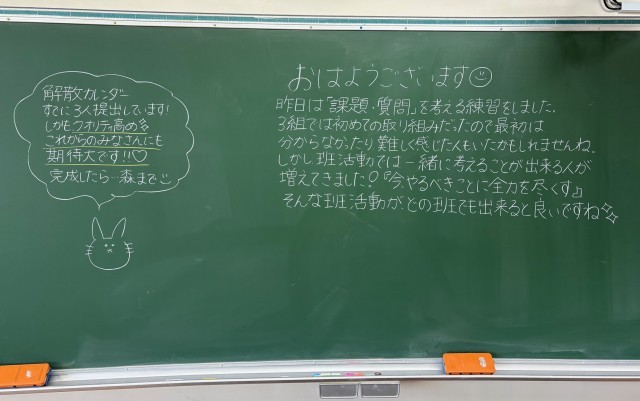 解散カレンダー
すでに3人提出しています!
しかもクオリティ高め
これからのみなさんにも
期待大です!!♡
完成したら…森まで
おはようございます
昨日は「課題・質問」を考える練習をしました。
3組では初めての取り組みだったので最初は
分からなかったり難しく感じた人もいたかもしれませんね。
しかし班活動では一緒に考えることが出来る人が
増えてきました!『今、やるべきことに全力を尽くす』
そんな班活動が、どの班でも出来ると良いですね